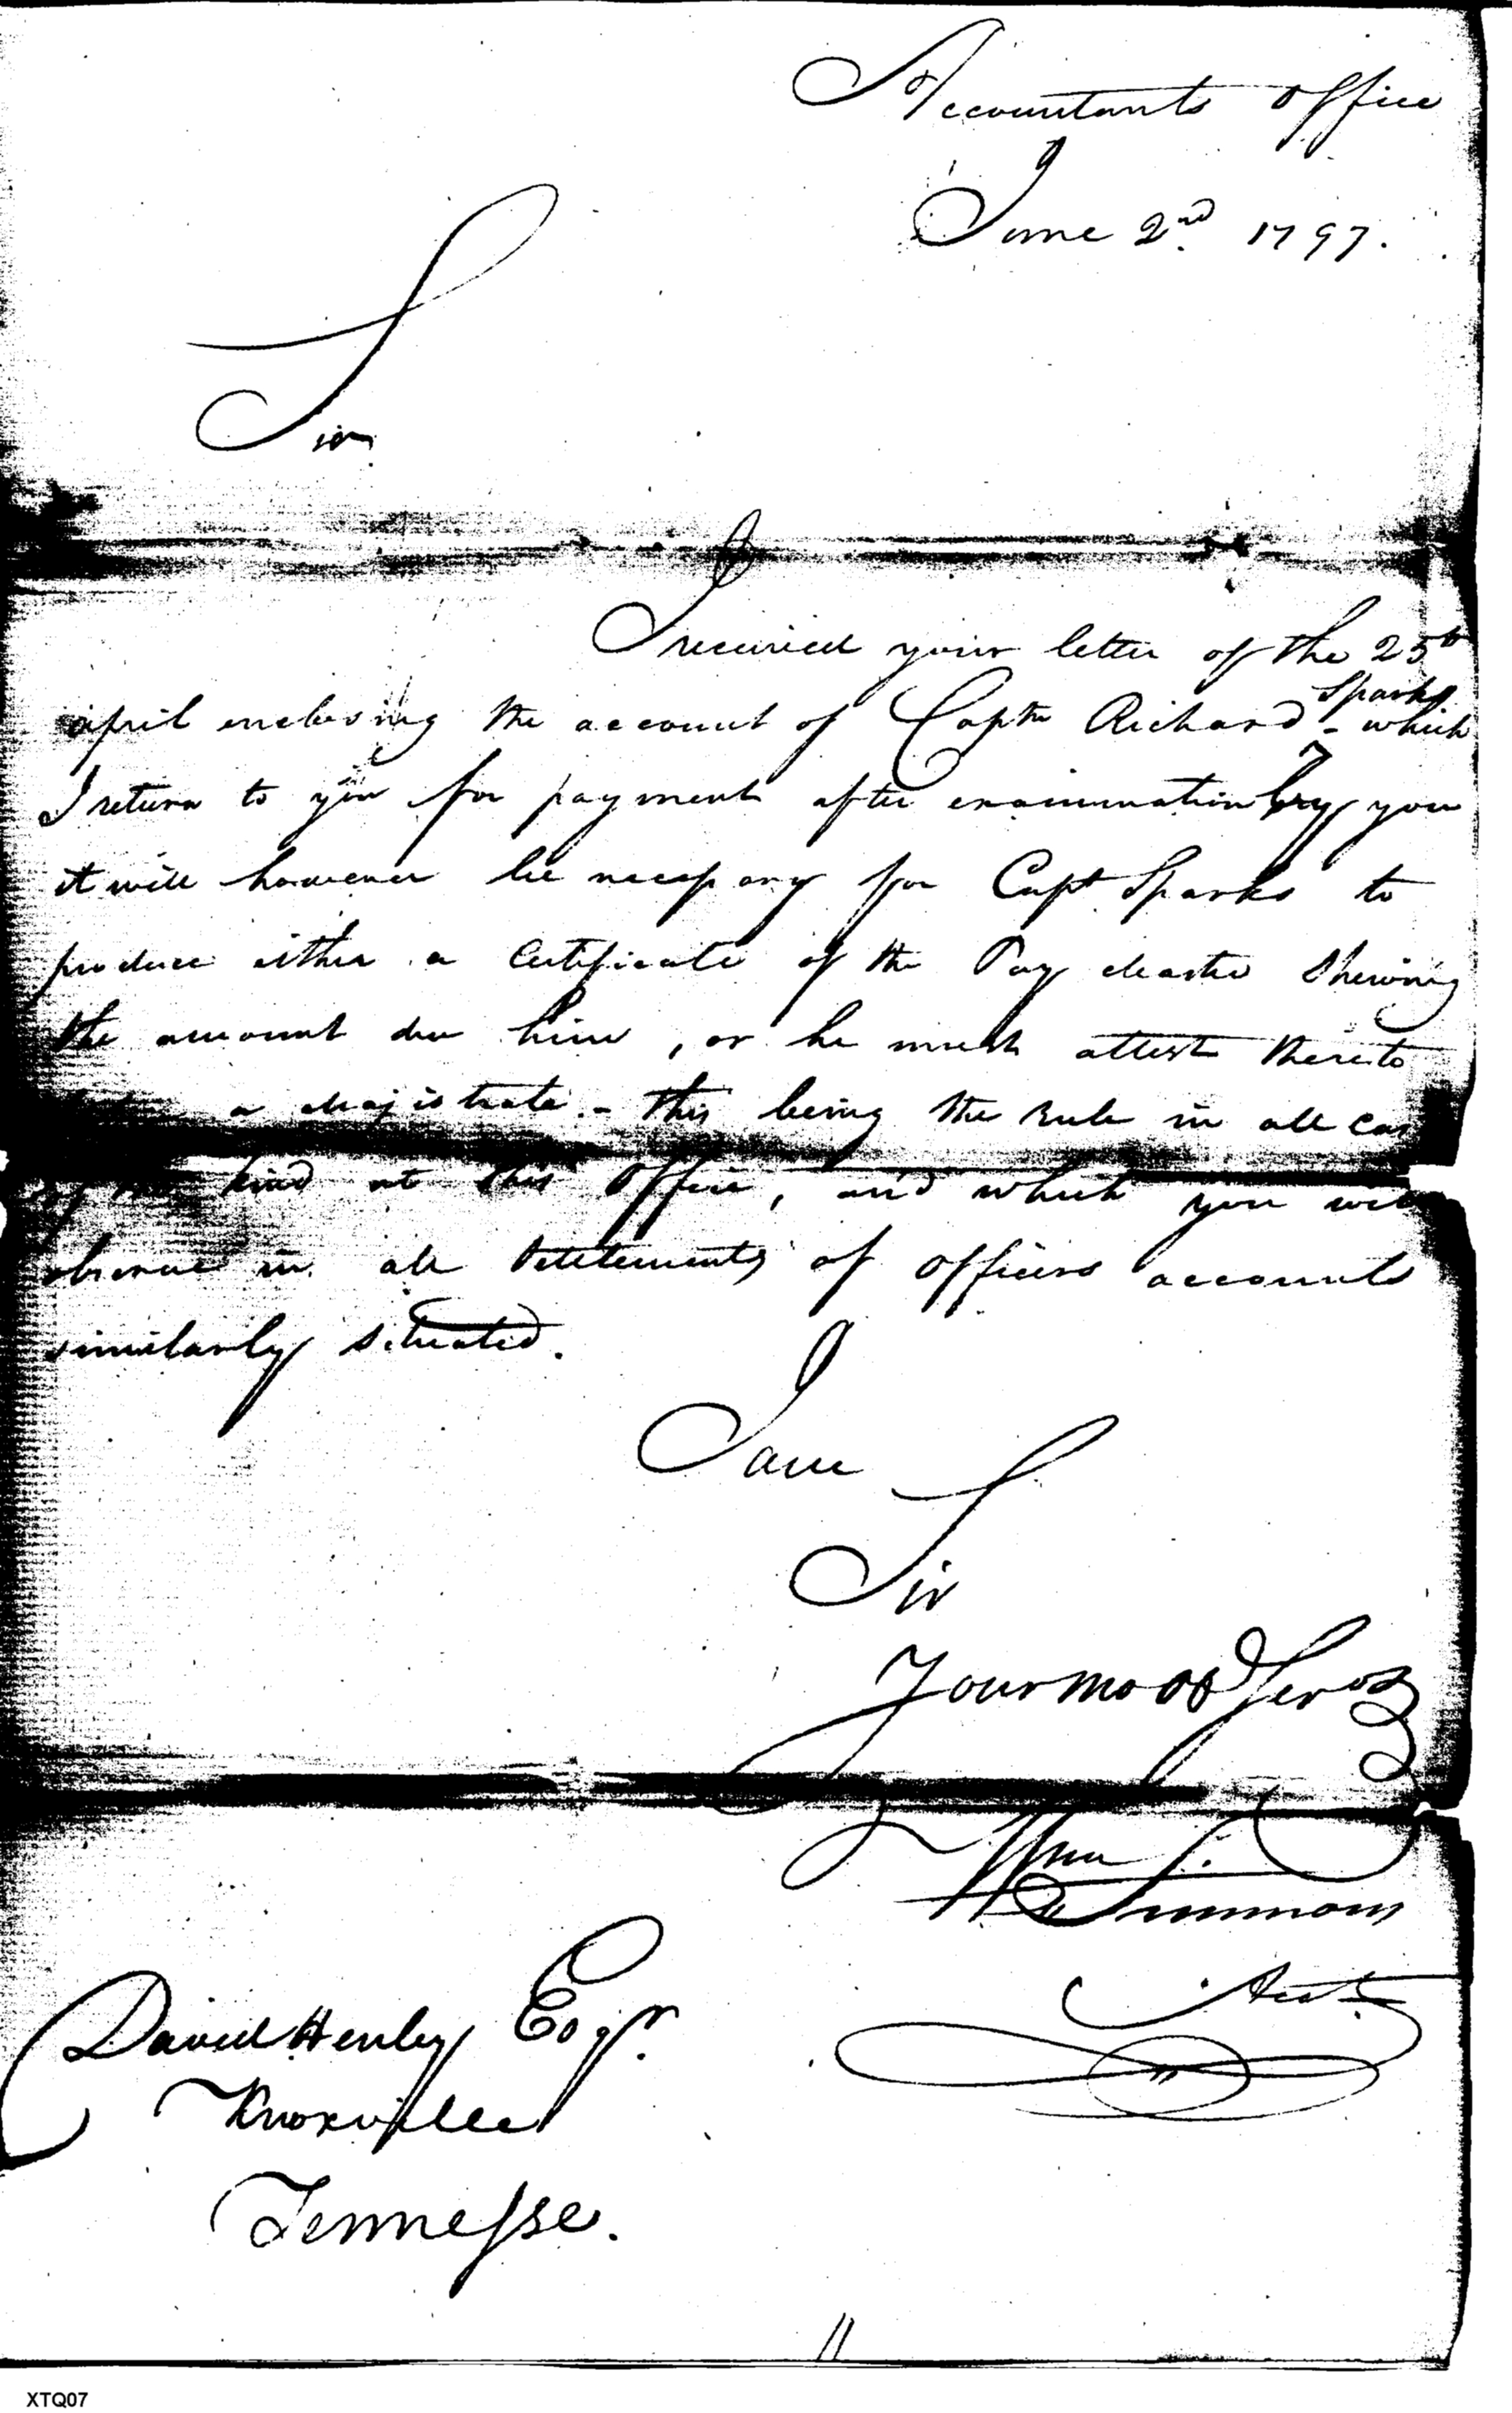 Accountants Office
June 2nd 1797.
Sir
I received your letter of the 25th
april enclosing the account of Captn Richard Sparks - which
I return to you for payment after examination by you
it will however be necessary for Capt Sparks to
produce either a Certificate of the Pay Master Shewing
the amount due him, or he must attest thereto
a Majistrate. - this being the rule in all cas
kind at this Office, and which you will
observe in all Settlements of Officers accounts
similarly situated.
I am
Sir
Your mo Ob Serv
Wm Simmons
Acct
David Henley Esqr.
Knoxville
Tennesse.
11
XTQ07